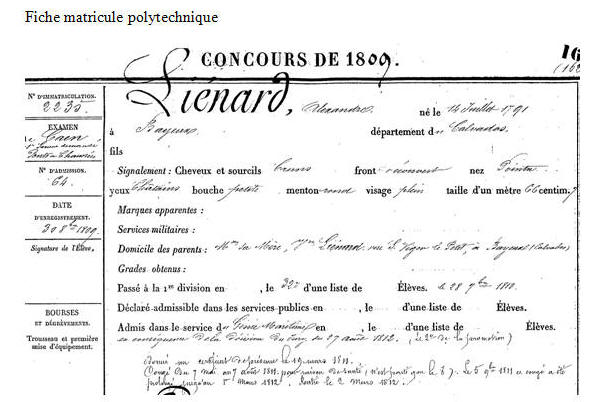 Fiche matricule polytechnique
CONCOURS DE 1809.
16
(162
N° D'IMMATRICULATION.
2235.
EXAMEN
de Caen
1ère
Ponts et Chaussées
N° D'ADMISSION.
64.
DATE
D'ENREGISTREMENT.
30 8bre 1809.
Signature de l'Élève.
BOURSES
ET DÉGRÈVEMENTS.
Trousseau et première
mise d'équipement.
Liénard, Alexandre né le 14 Juillet 1791
à Bayeux département du Calvados.
fils
Signalement : Cheveux et sourcils bruns front découvert nez Pointu
yeux Châtains bouche petite menton rond visage plein taille d'un mètre 66 centim. 7
Marques apparentes :
Services militaires :
Domicile des parents : Mme sa Mère, Vve Liénard, rue St le Petit, à Bayeux (Calvados)
Grades obtenus :
Passé à la 1re division en , le 32e d'une liste de Élèves. le 28 7bre 1810.
Déclaré admissible dans les services publics en , le d'une liste de Élèves.
Admis dans le service du Génie Maritime en , le d'une liste de Élèves.
en conséquence de la décision du Jury du 27 août 1812. (le 2e de la promotion)
Donné un certificat de présence le 19 mars 1811.
Congé du 7 mai au 7 août 1811. pour raison de santé, n'est parti que le 8 Le 5 9bre 1811 ce congé a été
prolongé jusqu'au 1er Mars 1812. rentré le 2 Mars 1812.